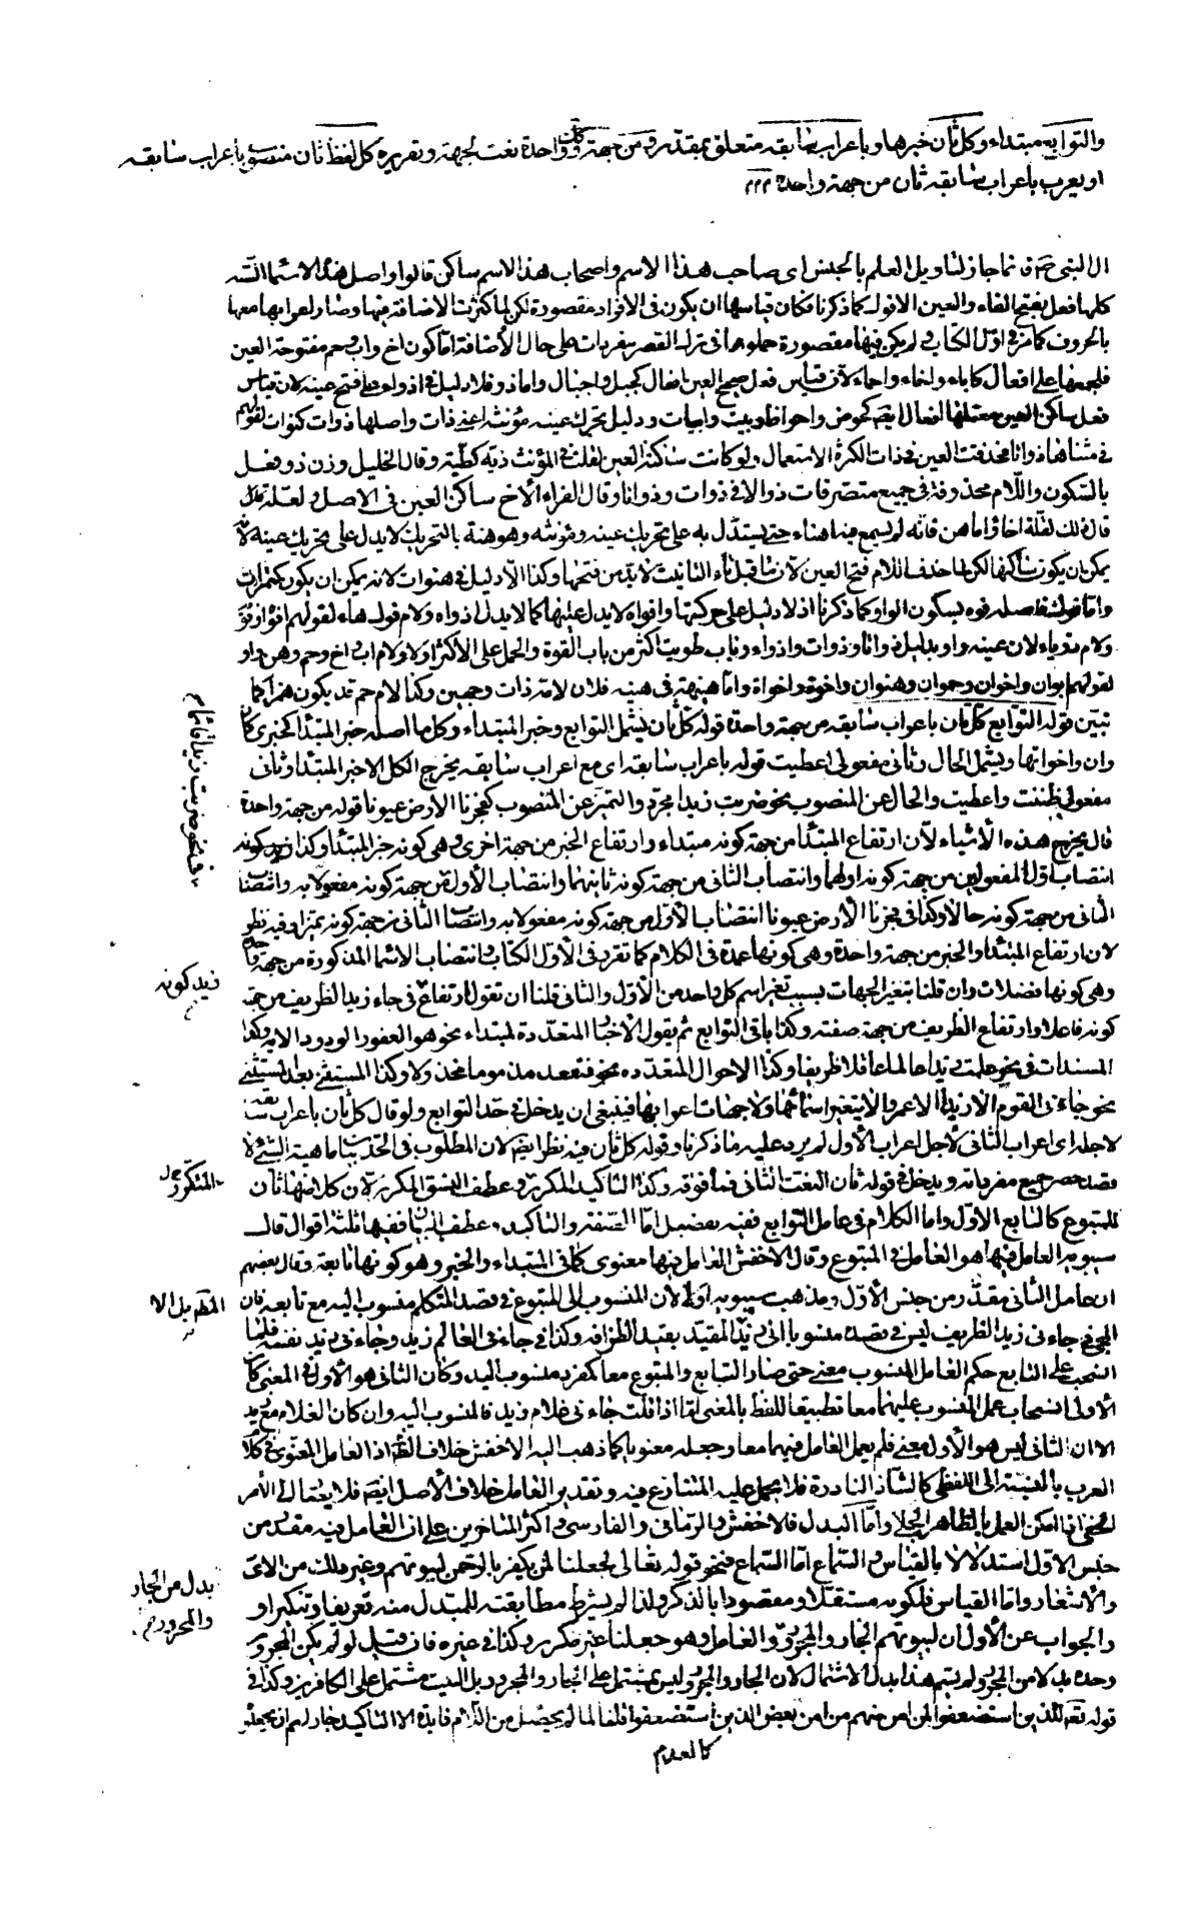 والتوابع مبتداء وكل ثان خبرها وباعراب سابقه متعلق بمقدر ومن جهة وكك واحدة نعت لجهة وتقريره كل لفظ ثان منسوق باعراب سابقه
او يعرب باعراب سابقه ثان من جهة واحدة
ال النبى فانما جاز لتاويل العلم بالجنس اى صاحب هذا الاسم واصحاب هذا الاسم ساكن قالوا واصل هذه الاسماء الستة
كلها فعل بفتح الفاء والعين الا فوك كما ذكرنا فكان قياسها ان يكون فى الافراد مقصورة لكن لما كثرت الاضافة فيها وصار اعرابها معها
بالحروف كما مر فى اول الكتاب لم يكن فيها مقصورة حملوها فى ترك القصر مفردات على حال الاضافة اما كون اخ واب وحم مفتوحة العين
فلجمعها على افعال كاباء واخاء واحماء لان قياس فعل صحيح العين افعال كجبل واجبال واما ذو فلا دليل فى اذواء على فتح عينه لان قياس
فعل ساكن العين معتلها افعال ايضا كحوض واحواض وبيت وابيات ودليل تحرك عينه مؤنثه اعنى ذات واصلها ذوات كنوات لقولهم
فى مثناها ذواتا فحذفت العين فى ذات لكثرة الاستعمال ولو كانت ساكنة العين لقلت فى المؤنث ذية كطية وقال الخليل وزن ذو فعل
بالسكون واللام محذوفة فى جميع متصرفات ذو الا فى ذوات وذواتا وقال الفراء الاخ ساكن العين فى الاصل ولعله
قال ذلك لقلة اخاء واما هن فانه لم يسمع فيه اهناء حتى يستدل به على تحريك عينه ومؤنثه وهو هنة بالتحريك لا يدل على تحريك عينه لانه
يمكن ان يكون ساكنها لكن لما حذف اللام فتح العين لان ما قبل تاء التانيث لا بد من فتحها وكذا لا دليل فى هنوات لانه يمكن ان يكون كتمرات
واما فوك فاصله فوه بسكون الواو كما ذكرنا اذ لا دليل على حركتها وافواه لا يدل عليها كما لا يدل اذواء ولام فوك هاء لقولهم افواه وفويه
ولام ذو ياء لان عينه واو بدليل ذواتا وذوات واذواء وباب طويت اكثر من باب القوة والحمل على الاكثر اولى ولام اب واخ وحم وهن واو
لقولهم ابوان واخوان وحموان وهنوان واخوة واخوات واما هنيهة فى هنية فلان لامه ذات وجهين وكذا لام حم قد يكون همزة كما
تبين قوله التوابع كل ثان باعراب سابقه من جهة واحدة قوله كل ثان يشمل التوابع وخبر المبتداء وكل ما اصله خبر المبتدأ كخبرى كان
وان واخواتها ويشمل الحال وثانى مفعولى اعطيت قوله باعراب سابقه اى مع اعراب سابقه يخرج الكل الا خبر المبتدا وثانى
مفعولى ظننت واعطيت والحال عن المنصوب نحو ضربت زيدا مجردا والتميز عن المنصوب كفجرنا الارض عيونا قوله من جهة واحدة
قال يخرج هذه الاشياء لان ارتفاع المبتدا من جهة كونه مبتداء وارتفاع الخبر من جهة اخرى وهى كونه خبر المبتدأ وكذا
انتصاب اول المفعولين من جهة كونه اولهما وانتصاب الثانى من جهة كونه ثانيهما وانتصاب الاول من جهة كونه مفعولا به وانتصاب
الثانى من جهة كونه حالا وكذا فى فجرنا الارض عيونا انتصاب الاول من جهة كونه مفعولا به وانتصاب الثانى من جهة كونه تميزا وفيه نظر
لان ارتفاع المبتدأ والخبر من جهة واحدة وهى كونهما عمدة فى الكلام كما تقرر فى الاول الكتاب وانتصاب الاسماء المذكورة من جهة واحدة
وهى كونها فضلات وان قلنا بتغير الجهات بسبب تغير اسم كل واحد من الاول والثانى قلنا ان نقول ارتفاع زيد فى جاء زيد الظريف من جهة
كونه فاعلا وارتفاع الظريف من جهة صفته وكذا باقى التوابع ثم يقول الاخبار المتعددة لمبتداء نحو هو الغفور الودود الاية وكذا
المسندات فى نحو علمت زيدا عالما عاقلا ظريفا وكذا الاحوال المتعدده نحو فتقعد مذموما مخذولا وكذا المستثنى بعد المستثنى
نحو جاءنى القوم الا زيدا الا عمروا لا يتغير اسمائها ولا جهات اعرابها فينبغى ان يدخل فى حد التوابع ولو قال كل ثان باعراب سابقه
لاجله اى اعراب الثانى لاجل اعراب الاول لم يرد عليه ما ذكرنا وقوله كل ثان فيه نظر ايضا لان المطلوب فى الحد بيان ماهية الشئ لا
قصد حصر جميع مفرداته ويدخل فى قوله ثان النعت الثانى فما فوقه وكذا التاكيد المكرر وعطف النسق المكرر لان كل منها ثان
للمتبوع كالتابع الاول واما الكلام فى عامل التوابع ففيه تفصيل اما الصفة والتاكيد وعطف البيان ففيها ثلثة اقوال قال
سيبويه العامل فيها هو العامل فى المتبوع وقال الاخفش العامل فيها معنوى كما فى المبتداء والخبر وهو كونها تابعة وقال بعضهم
ان عامل الثانى مقدر من جنس الاول ومذهب سيبويه اولى لان المنسوب الى المتبوع فى قصد المتكلم منسوب اليه مع تابعه فان
المجئ فى جاءنى زيد الظريف ليس فى قصده منسوبا الى زيد المقيد بقيد الظرافه وكذا فى جاءنى العالم زيد وجاءنى زيد نفسه فلما
انسحب على التابع حكم العامل المنسوب معنى حتى صار التابع والمتبوع معا كمفرد منسوب اليه وكان الثانى هو الاول فى المعنى كان
الاولى انسحاب عمل المنسوب عليهما معا تطبيقا للفظ بالمعنى اما اذا قلت جاءنى غلام زيد فالمنسوب اليه وان كان الغلام مع زيد
الا ان الثانى ليس هو الاول معنى فلم يعمل العامل فيهما معا وجعله معنويا كما ذهب اليه الاخفش خلاف الظاهر اذ العامل المعنوى فى كلام
العرب بالنسبة الى اللفظى كالشاذ النادرة فلا يحمل عليه المتنازع فيه وتقدير العامل خلاف الاصل ايضا فلا يصار الى الامر
الخفى اذا امكن العمل بالظاهر الجلى واما البدل فالاخفش والرمانى والفارسى واكثر المتاخرين على ان العامل فيه مقدر من
جنس الاول استدلالا بالقياس والسماع اما السماع فنحو قوله تعالى لجعلنا لمن يكفر بالرحمن لبيوتهم وغير ذلك من الاى
والاشعار واما القياس فلكونه مستقلا ومقصودا بالذكر ولذا لم يشترط مطابقته للمبدل منه تعريفا وتنكيرا و
والجواب عن الاول ان لبيوتهم الجار والمجرور والعامل وهو جعلنا غير مكرر وكذا فى غيره فان قيل لو لم يكن المجرور
وحده بدلا من المجرور لم يسم هذا بدل الاشتمال لان الجار والمجرور ليس بمشتمل على الجار والمجرور بل البيت مشتمل على الكافر وكذا فى
قوله تعالى للذين استضعفوا لمن امن منهم من امن بعض الذين استضعفوا قلنا لما لم يحصل من اللام فايدة الا التاكيد جاز لهم ان يجعلو
كالعدم
فى نحو ضربت زيدا قائما
زيد كونه
المتكرر
بدل من الجار
والمجرور